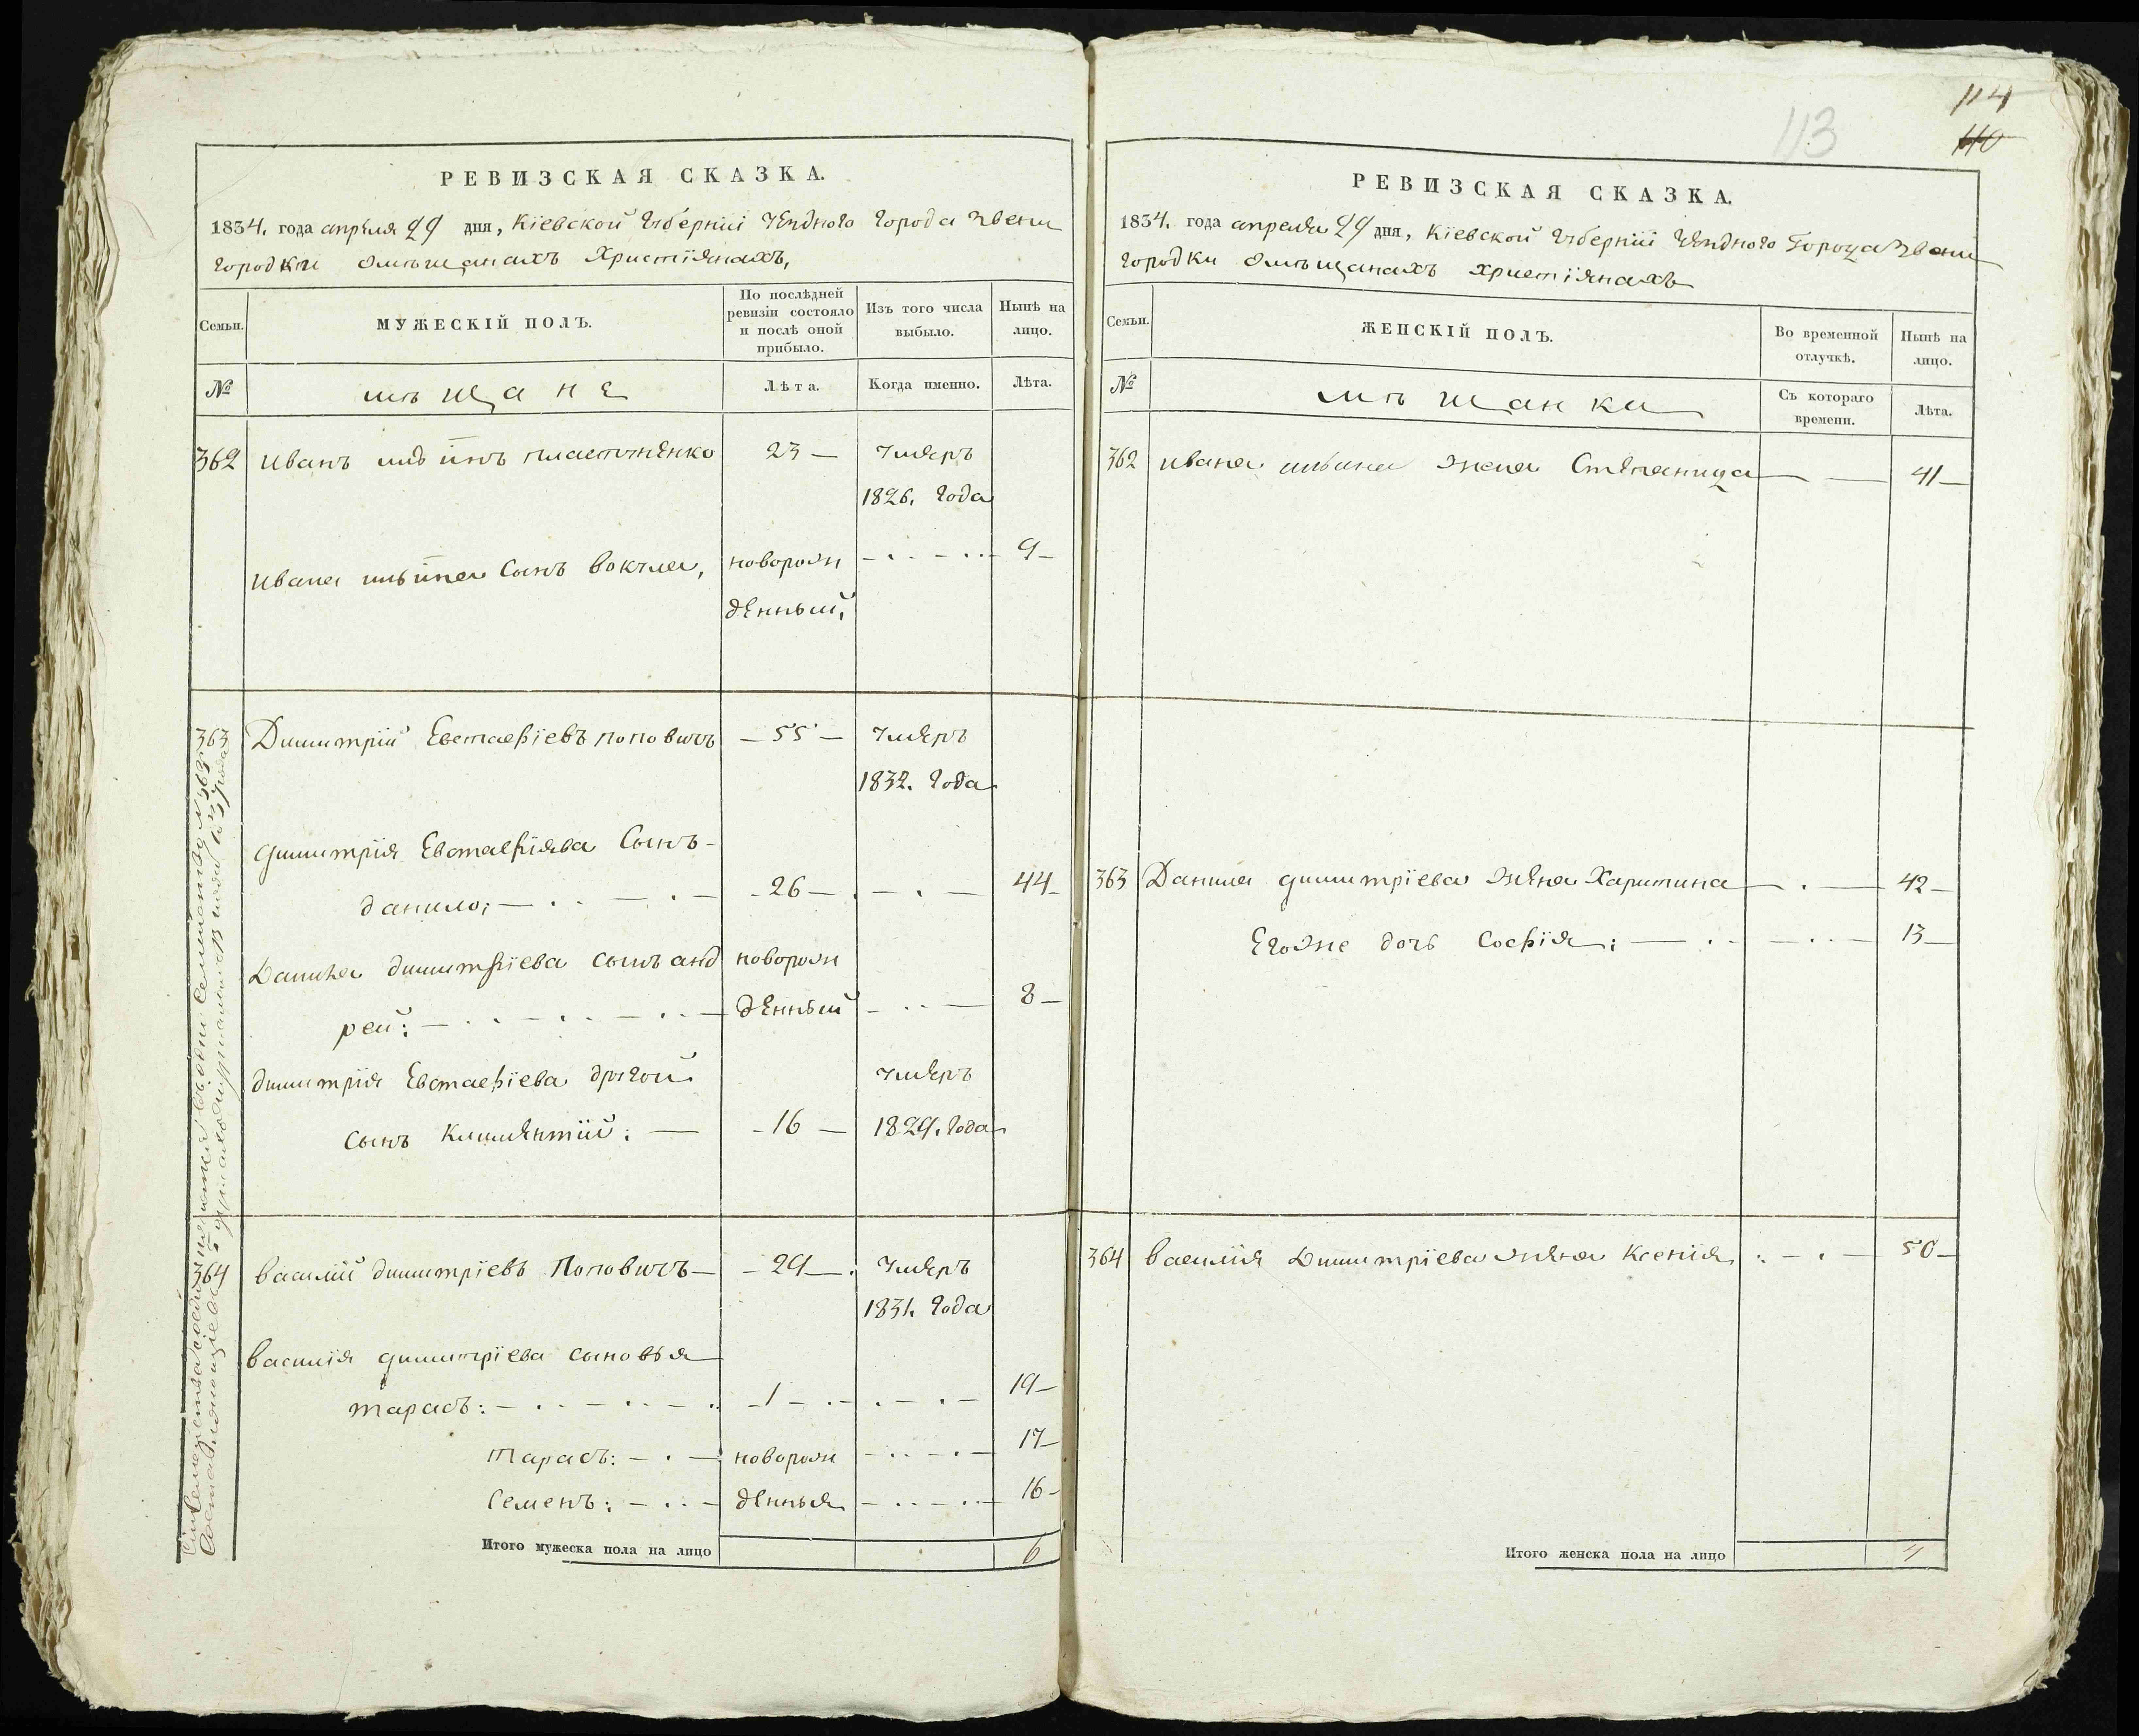 114
113
110
РЕВИЗСКАЯ СКАЗКА.
1834. года апреля 29 дня, Кіевской Губерніи Уезднаго Города Звени
городки омѣщанахъ Христіянахъ,
Семьи.
МУЖЕСКІЙ ПОЛЪ.
По послѣдней ревизіи состояло и послѣ оной прибыло.
Изъ того числа выбыло.
Нынѣ на лицо.
№
мѣщане
Лѣта.
Когда именно.
Лѣта.
362 Иванъ 23 — Умеръ
1826. Года
Ивана сынъ новорож 9 —
денный,
363 Димитрій Евстафіевъ Поповичъ — 55 — Умеръ
1832. Года
Димитрія Евстафіева Сынъ
данило; — 26 — 44
Данила димитріева сынъ анд новорож
рей: денный 8 —
димитрія Евстафіева другой Умеръ
сынъ Климентій: — 16 — 1829. Года
364 Василій димитріевъ Поповичъ — 29 — Умеръ
1831. Года
Василія димитріева сыновья
тарасъ: 1 19 —
Тарасъ: новорож 17 —
Семенъ: денныя 16 —
Итого мужеска пола на лицо 6
РЕВИЗСКАЯ СКАЗКА.
1834. года апреля 29 дня, Кіевской Губерніи Уезднаго Города Звени
городки омѣщанахъ христіянахъ
Семьи.
ЖЕНСКІЙ ПОЛЪ.
Во временной отлучкѣ.
Нынѣ на лицо.
№
мѣщанки
Съ котораго времени.
Лѣта.
362 Ивана жена Степанида 41 —
363 Данила димитріева жена Харитина 42 —
Егоже дочь Софія: 13 —
364 Василія Димитріева жена Ксенія 50 —
Итого женска пола на лицо 4